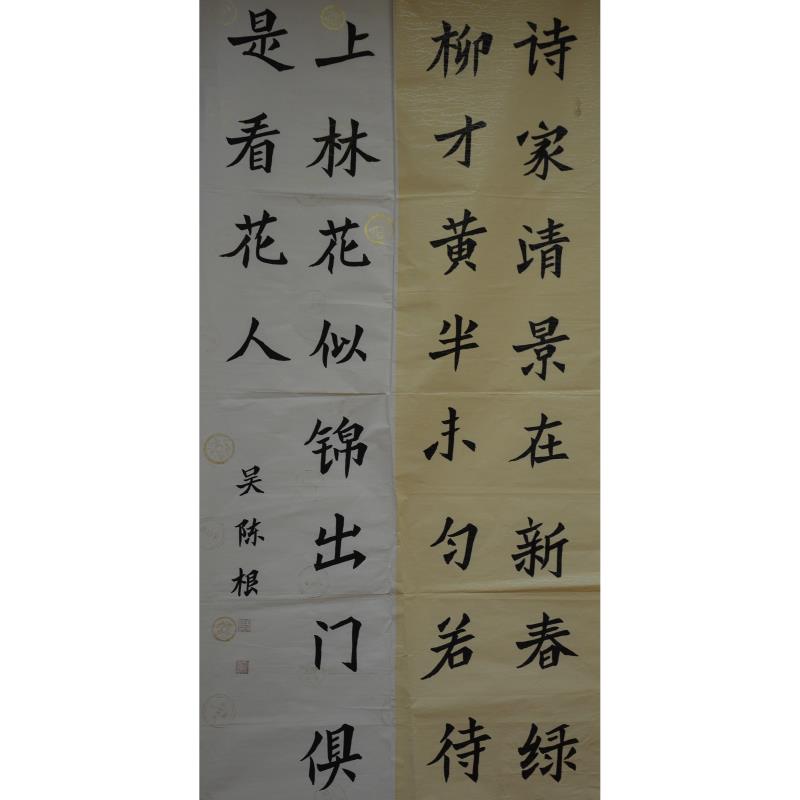 诗家清景在新春绿
柳才黄半未匀若待
上林花似锦出门俱
是看花人
吴陈根